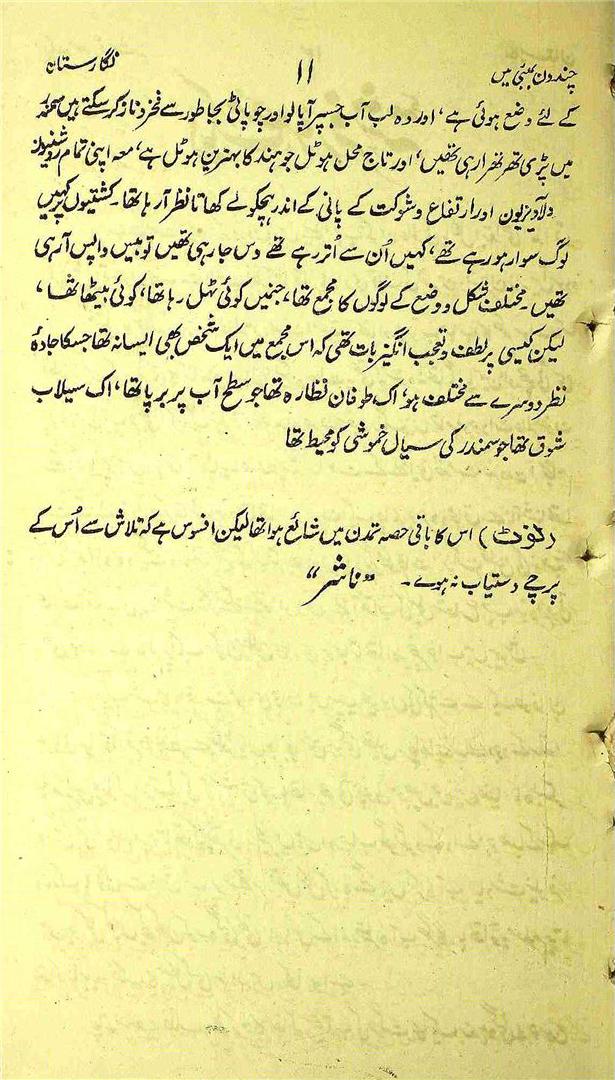 چند دن بمبئی میں ۱۱ نگارستان
کے لئے وضع ہوئی ہے، اور وہ لب آب جسپر آپالو اور چوپاٹی بجا طور سے فخر و ناز کر سکتے ہیں سمندر
میں پڑی تھر تھرا رہی تھیں، اور تاج محل ہوٹل جو ہند کا بہترین ہوٹل ہے، معہ اپنی تمام روشنیوں
دلآویزیوں اور ارتفاع و شوکت کے پانی کے اندر ہچکولے کھاتا نظر آرہا تھا۔ کشتیوں پر کہیں
لوگ سوار ہو رہے تھے، کہیں اُن سے اُتر رہے تھے دس جارہی تھیں تو بیس واپس آرہی
تھیں۔ مختلف شکل و وضع کے لوگوں کا مجمع تھا، جنیں کوئی ٹہل رہا تھا، کوئی بیٹھا تھا،
لیکن کیسی پر لطف و تعجب انگیز بات تھی کہ اس مجمع میں ایک شخص بھی ایسا نہ تھا جسکا جادۂ
نظر دوسرے سے مختلف ہو، اک طوفان نظارہ تھا جو سطح آب پر برپا تھا، اک سیلاب
شوق تھا جو سمندر کی سیال خموشی کو محیط تھا
(نوٹ) اس کا باقی حصہ تمدن میں شائع ہوا تھا لیکن افسوس ہے کہ تلاش سے اُس کے
پرچے دستیاب نہ ہوے۔ "ناشر"